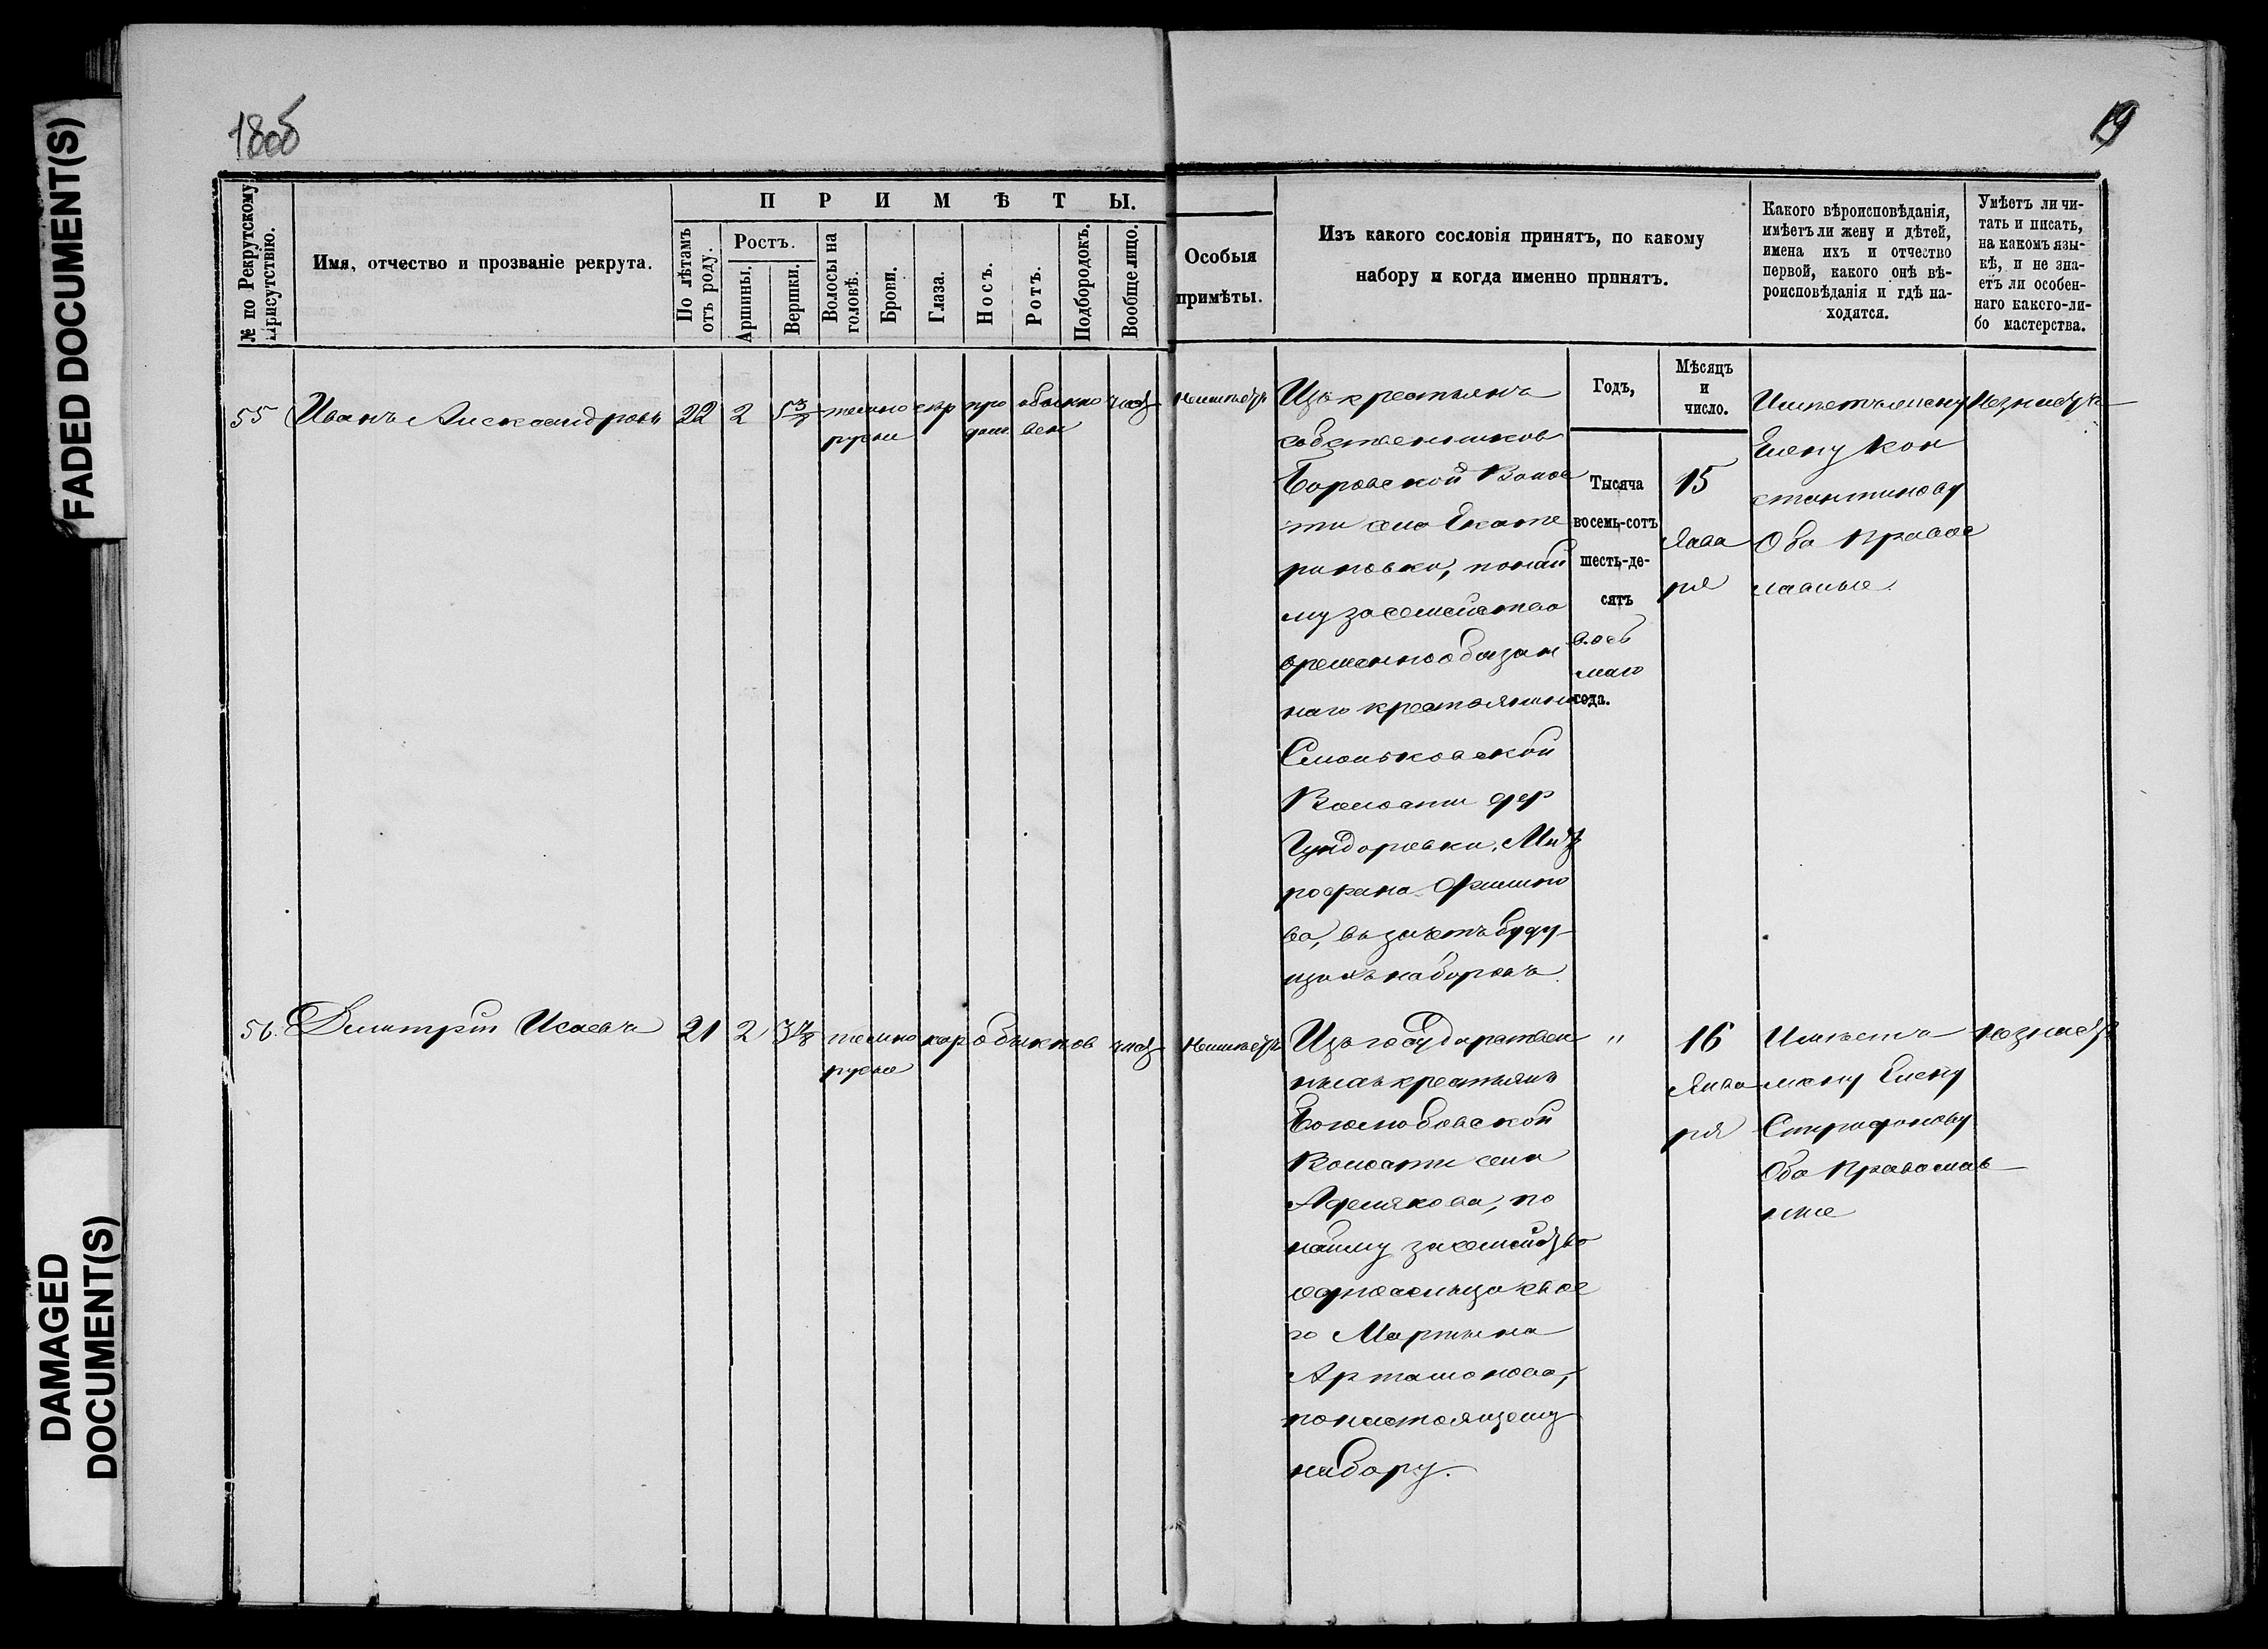 FADED DOCUMENT(S)
DAMAGED
DOCUMENT(S)
18об
19
№ по Рекрутскому
присутствію.
Имя, отчество и прозваніе рекрута.
ПРИМѢТЫ.
По лѣтамъ
отъ роду.
Ростъ.
Аршины.
Вершки.
Волосы на
головѣ.
Брови.
Глаза.
Носъ.
Ротъ.
Подбородокъ.
Вообще лицо.
Особыя
примѣты.
Изъ какого сословія принятъ, по какому
набору и когда именно принятъ.
Какого вѣроисповѣданія,
имѣетъ ли жену и дѣтей,
имена ихъ и отчество
первой, какого онѣ вѣ-
роисповѣданія и гдѣ на-
ходятся.
Умѣетъ ли чи-
тать и писать,
на какомъ язы-
кѣ, и не зна-
етъ ли особен-
наго какого-ли-
бо мастерства.
Годъ,
Мѣсяцъ
и
число.
55 Иванъ Александровъ 22 2 темно сѣр про обыкно чист
русые дол вен
Неимѣетъ
Изъ крестьянъ
собственниковъ
Боровской Волос
ти села Екате
риновки, понай
му за семейство
временнообязан
наго крестьянина
Смольковской
Волости дер
Гундоровки, Мит
рофана Филипо
ва, въ зачетъ буду-
щихъ наборовъ
Тысяча
восемь-сотъ
шесть-де-
сятъ
вось
маго
года.
15
Янва
ря
Имѣетъ жену
Елену Кон
стантинову
Оба правос
лавные.
Незнаетъ
56. Дмитрій Исаевъ 21 2 3 4/8 темно кар обыкнов чист
русые
Неимѣетъ
Изъ государствен
ныхъ крестьянъ
Боголюбовской
Волости села
Аделякова, по
найму за семейство
односельца свое
го Мартына
Артамонова,
по настоящему
набору.
"
16
Янва
ря
Имѣетъ
жену Елену
Спиридонову
Оба Православ-
ные
Незнаетъ